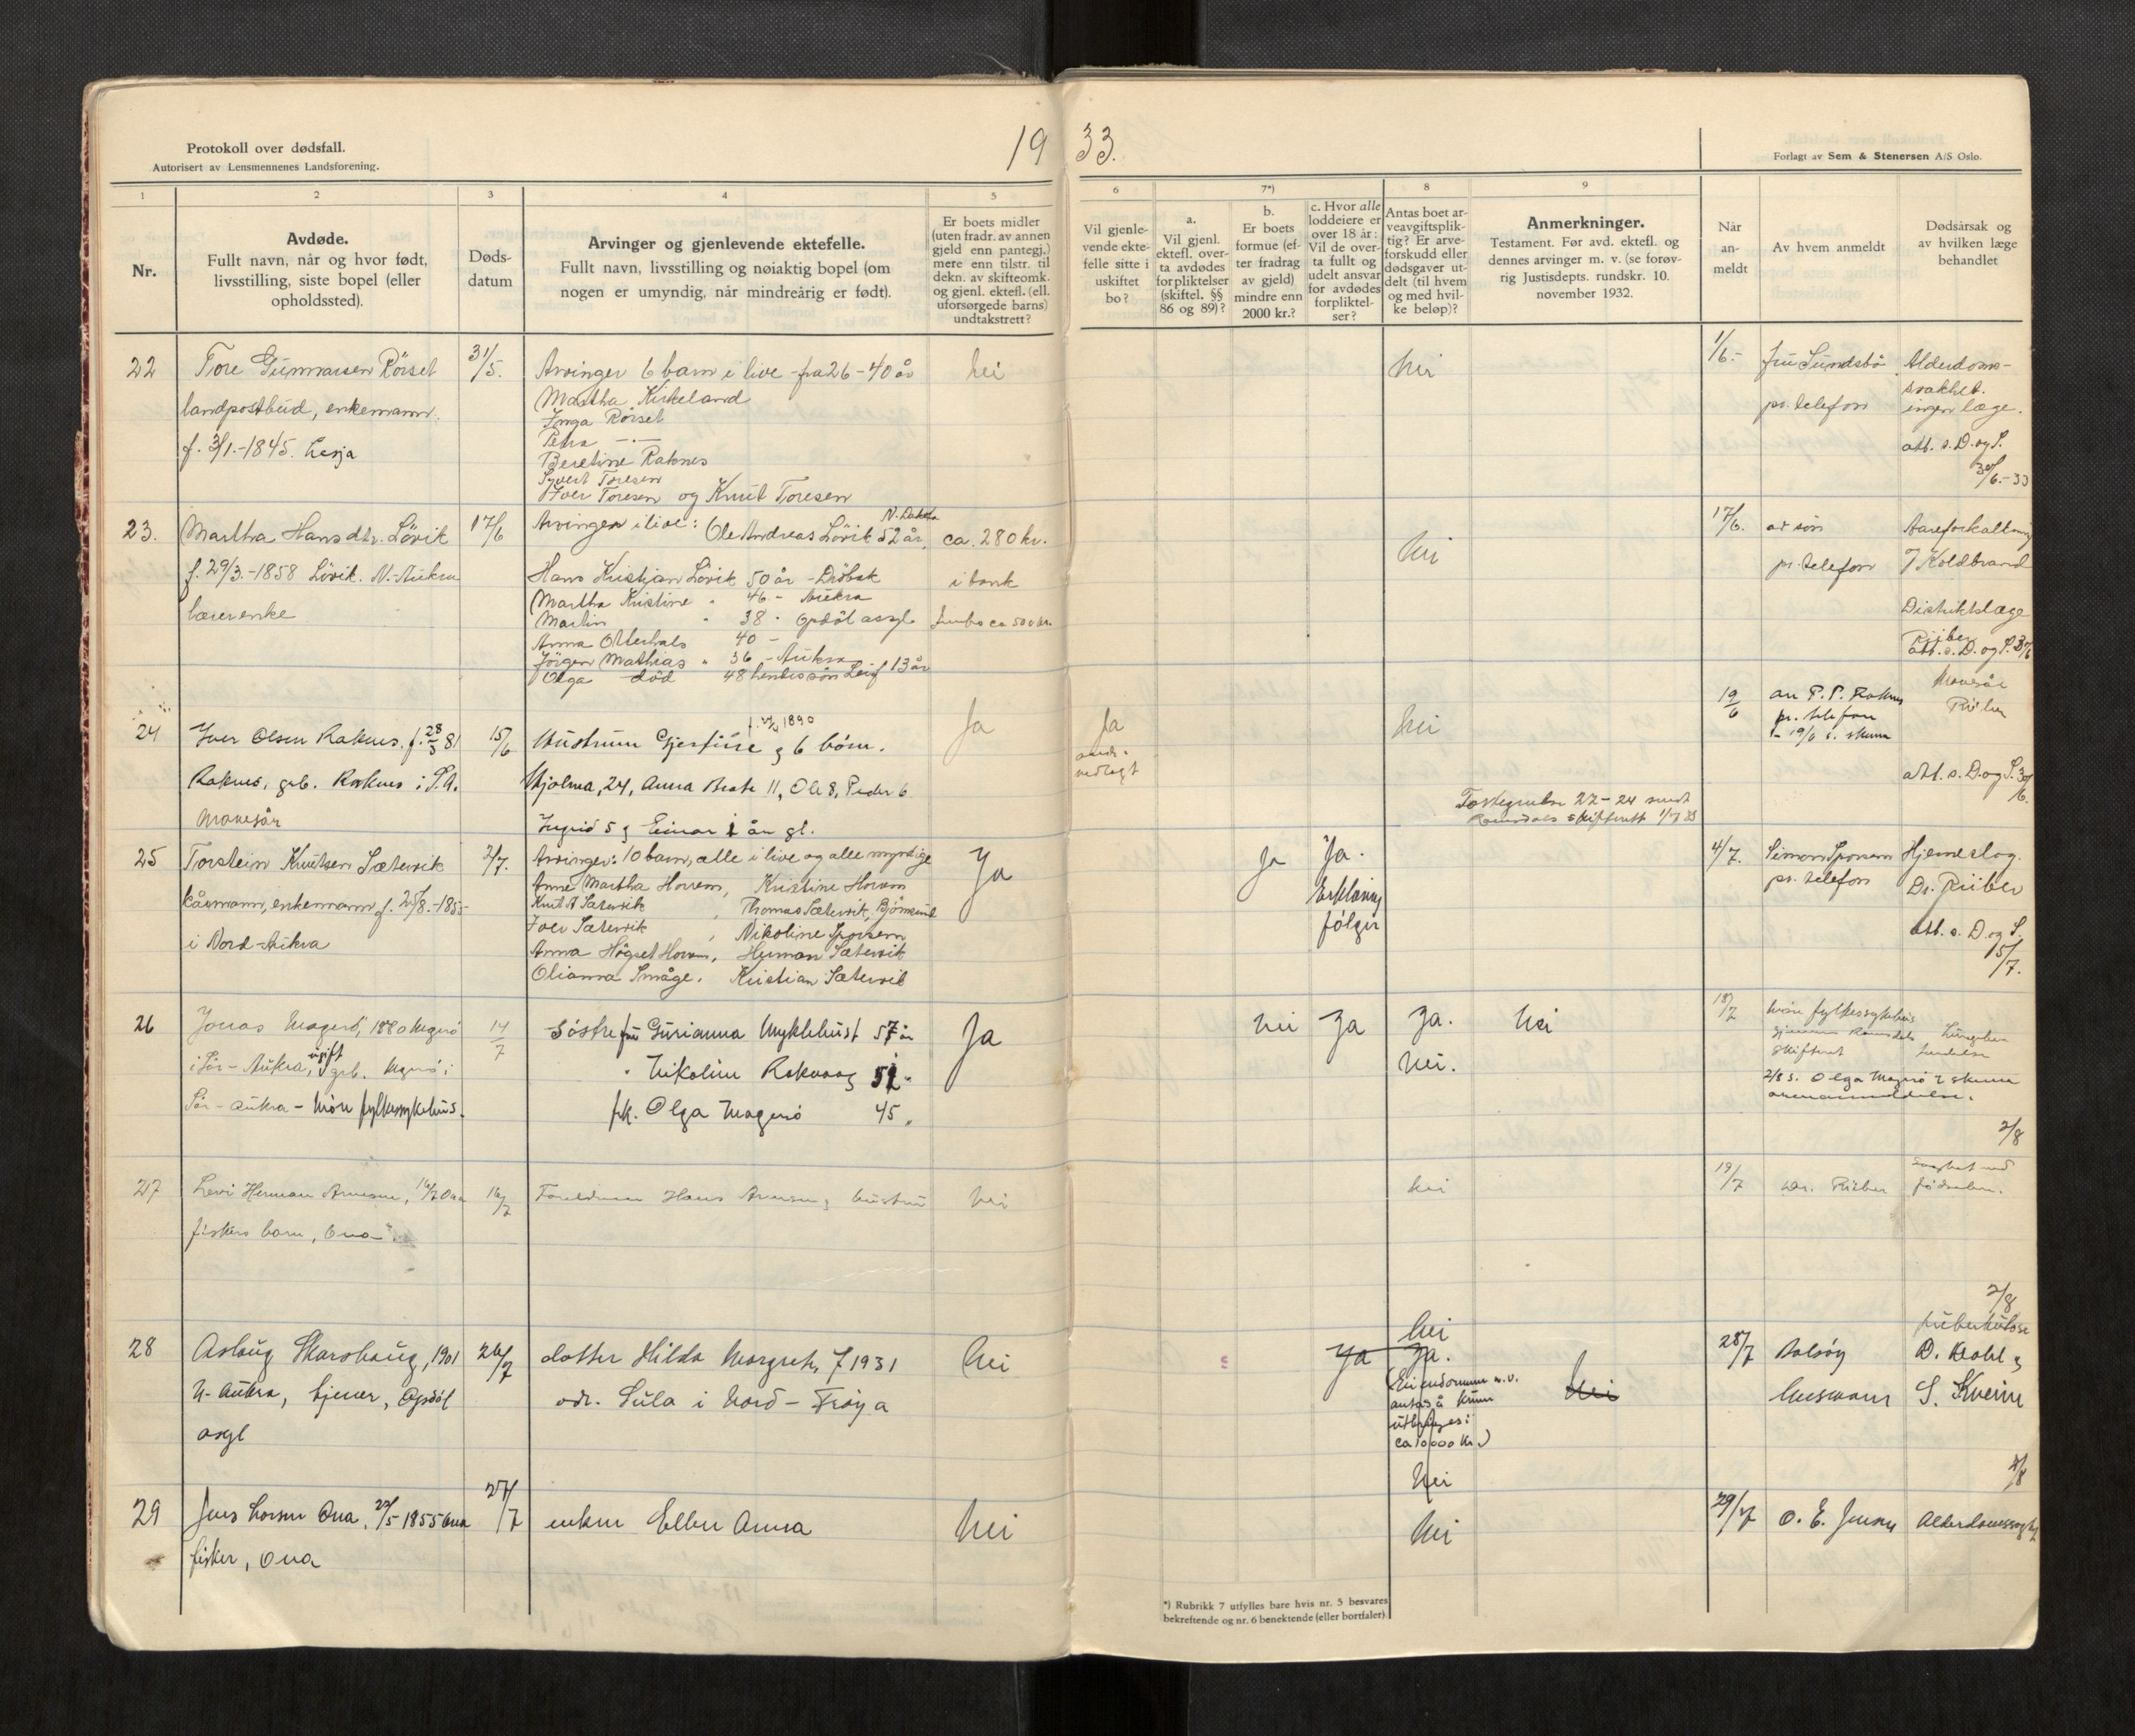 Protokoll over dødsfall.
Autorisert av Lensmennenes Landsforening.
19 33.
Forlagt av Sem & Stenersen A/S Oslo.
1 2 3 4 5 6 7*) 8 9
Nr.
Avdøde.
Fullt navn, når og hvor født,
livsstilling, siste bopel (eller
opholdssted).
Døds-
datum
Arvinger og gjenlevende ektefelle.
Fullt navn, livsstilling og nøiaktig bopel (om
nogen er umyndig, når mindreårig er født).
Er boets midler
(uten fradr. av annen
gjeld enn pantegj.)
mere enn tilstr. til
dekn. av skifteomk.
og gjenl. ektefl. (ell.
uforsørgede barns)
undtakstrett?
Vil gjenle-
vende ekte-
felle sitte i
uskiftet
bo?
a.
Vil gjenl.
ektefl. over-
ta avdødes
forpliktelser
(skiftel. §§
86 og 89)?
b.
Er boets
formue (ef-
ter fradrag
av gjeld)
mindre enn
2000 kr.?
c. Hvor alle
loddeiere er
over 18 år:
Vil de over-
ta fullt og
udelt ansvar
for avdødes
forpliktel-
ser?
Antas boet ar-
veavgiftsplik-
tig? Er arve-
forskudd eller
dødsgaver ut-
delt (til hvem
og med hvil-
ke beløp)?
Anmerkninger.
Testament. Før avd. ektefl. og
dennes arvinger m. v. (se forøv-
rig Justisdepts. rundskr. 10.
november 1932.
Når
an-
meldt
Av hvem anmeldt
Dødsårsak og
av hvilken læge
behandlet
22
Tore Gunnarsen Rörset
landpostbud, enkemann.
f. 3/1.-1845. Lesja
31/5.
Arvinger 6 barn i live - fra 26-40 år
Martha Kirkeland
Inga Rörset
Petra -"-
Beretine Raknes
Syvert Toresen
Iver Toresen og Knut Toresen
nei
nei
1/6.-
fru Sundsbö
pr. telefon
Alderdoms-
svakhet.
ingen læge.
att. s. D. og S.
30/6.-33
23.
Martha Hansdtr. Lövik
f. 29/3.-1858 Lövik. N.-Aukra
lærerenke
17/6
Arvinger i live: Ole Andreas Lövik 52 år, N. Dakota
Hans Kristjan Lövik 50 år - Dröbak
Martha Kristine " 46 - Aukra
Martin " 38 - Opdöl asyl.
Anna Otterhals 40 -
Jörgen Mathias " 36 - Aukra
Olga död 48 hendes sön Leif 13 år
ca. 280 kr.
i bank
Innbo ca 500 kr.
nei
17/6.
av sön
pr. telefon
Aareforkalkning
Koldbrand
Distriktslæge
Riiber
att. s. D. og S. 30/6
24
Iver Olsen Raknes. f. 28/3 81
Raknes, grb. Raknes i S. A.
15/6
Hustrun Gjertine f. 1890 og 6 börn.
Hjolma, 24, Anna Beate 11, Ole 8, Peder 6
Ingrid 5 og Einar 1 år gl.
Ja
Ja
vedlagt
nei
Rørsdals
19/6
av P. P. Raknes
pr. telefon
19/6 s. skuen
Riiber
att. s. D. og S. 30/6.
25
Torstein Knutsen Sætervik
kårmann, enkemann f. 25/8.-1855-
i Nord-Aukra
2/7.
Arvinger: 10 barn, alle i live og alle myndige
Anne Martha Horrem, Kristine Horrem
Knut T Sætervik, Thomas Sætervik, Björnsund
Iver Sætervik, Nikoline Sporsem
Anna Högset Horrem, Herman Sætervik
Olianna Småge, Kristian Sætervik
Ja
Ja
Ja.
Erklæring
fölger
4/7.
Simon Sporsem
pr. telefon
Hjerneslag.
Dr. Riiber
att. s. D. og S.
15/7.
26
Jonas Magerö, 1880 Magerö
i Sör-Aukra, ugift grb. Magerö i
Sör-Aukra - Möre fylkessykehus.
14/7
Söstre fru Gurianna Myklebust 57 år
" Nikoline Rakvaag 51 "
frk. Olga Magerö 45 "
Ja
nei
Ja
Ja.
nei.
Nei
18/7
Möre fylkessykehus
gjennem Romsdals
skifterett
2/8 s. Olga Magerö
Lungebe-
tendelse
2/8
27
Levi Herman Arnesen, 16/7 Ona
fiskers barn, Ona
16/7
Foreldrene Hans Arnesen og hustru
nei
nei
19/7
Dr. Riiber
Svaghet ved
födselen.
2/8
28
Aslaug Skarshaug, 1901
N-Aukra, tjener, Opdöl
asyl
26/7
datter Hilda Margrete f 1931
adr. Sula i Nord-Fröya
Nei
Ja
Nei
Ja.
(Eiendommen m.v.
antas å kunne
utbringes i
ca 10000 kr.)
nei
Nei
28/7
Aalsög
tuberkulose
D. Dahl og
S. Kveim
2/8
29
Jens Larsen Ona, 22/5-1855 Ona
fisker, Ona
27/7
enken Ellen Anna
Nei
Nei
29/7
O. E. Jensen
Alderdomssvaghet
*) Rubrikk 7 utfylles bare hvis nr. 5 besvares
bekreftende og nr. 6 benektende (eller bortfaler)